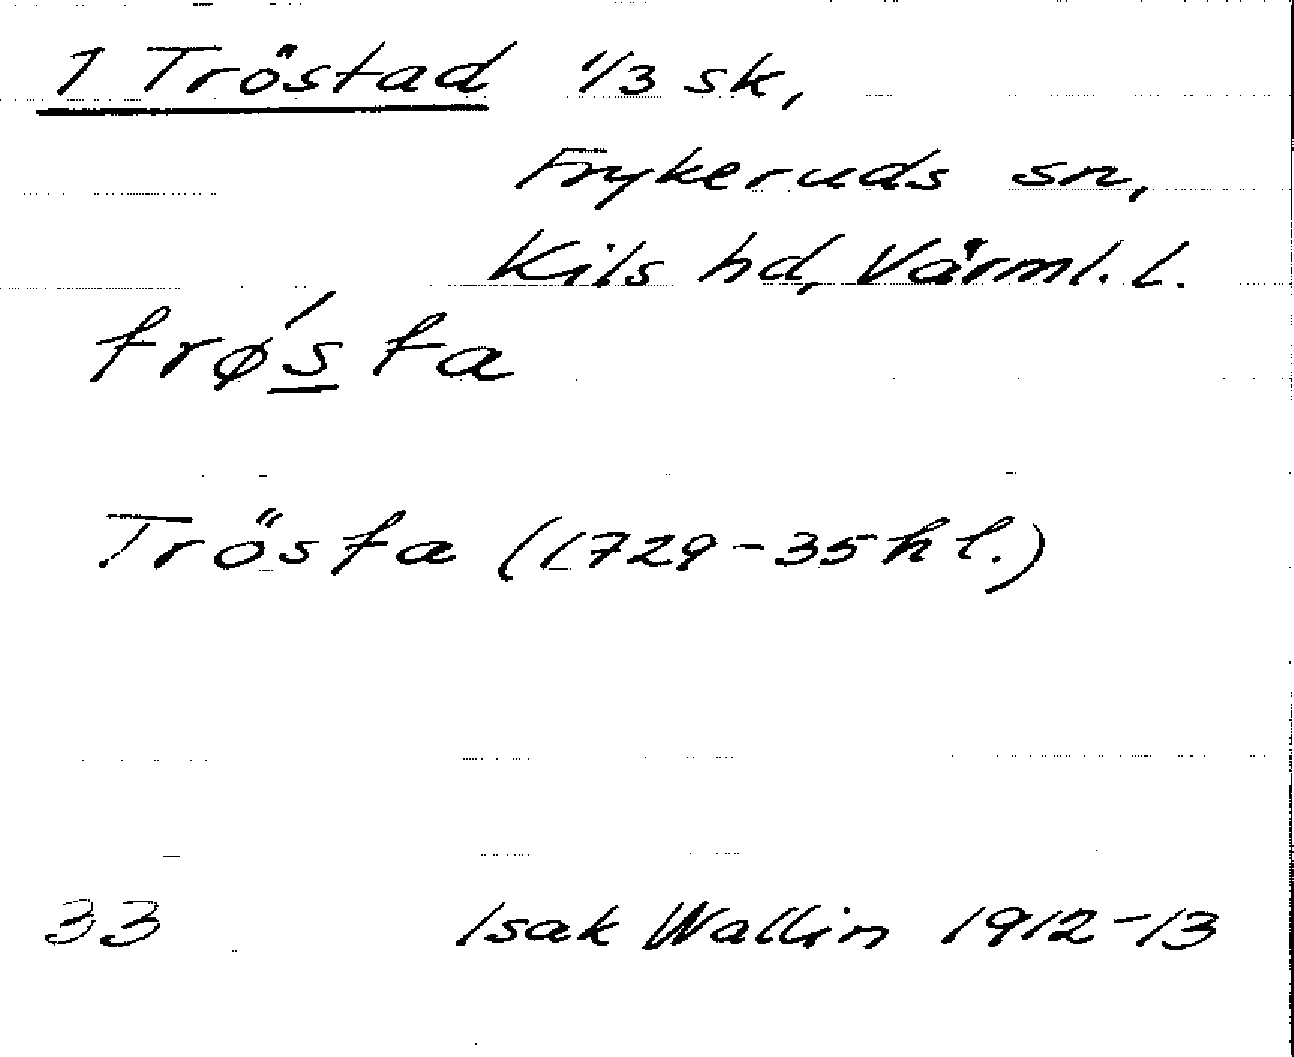 1 Tröstad 1/3 sk,
Frykeruds sn,
Kils hd, Värml. l.
trǿsta
Trösta (1729-35 hl.)
33 Isak Wallin 1912-13